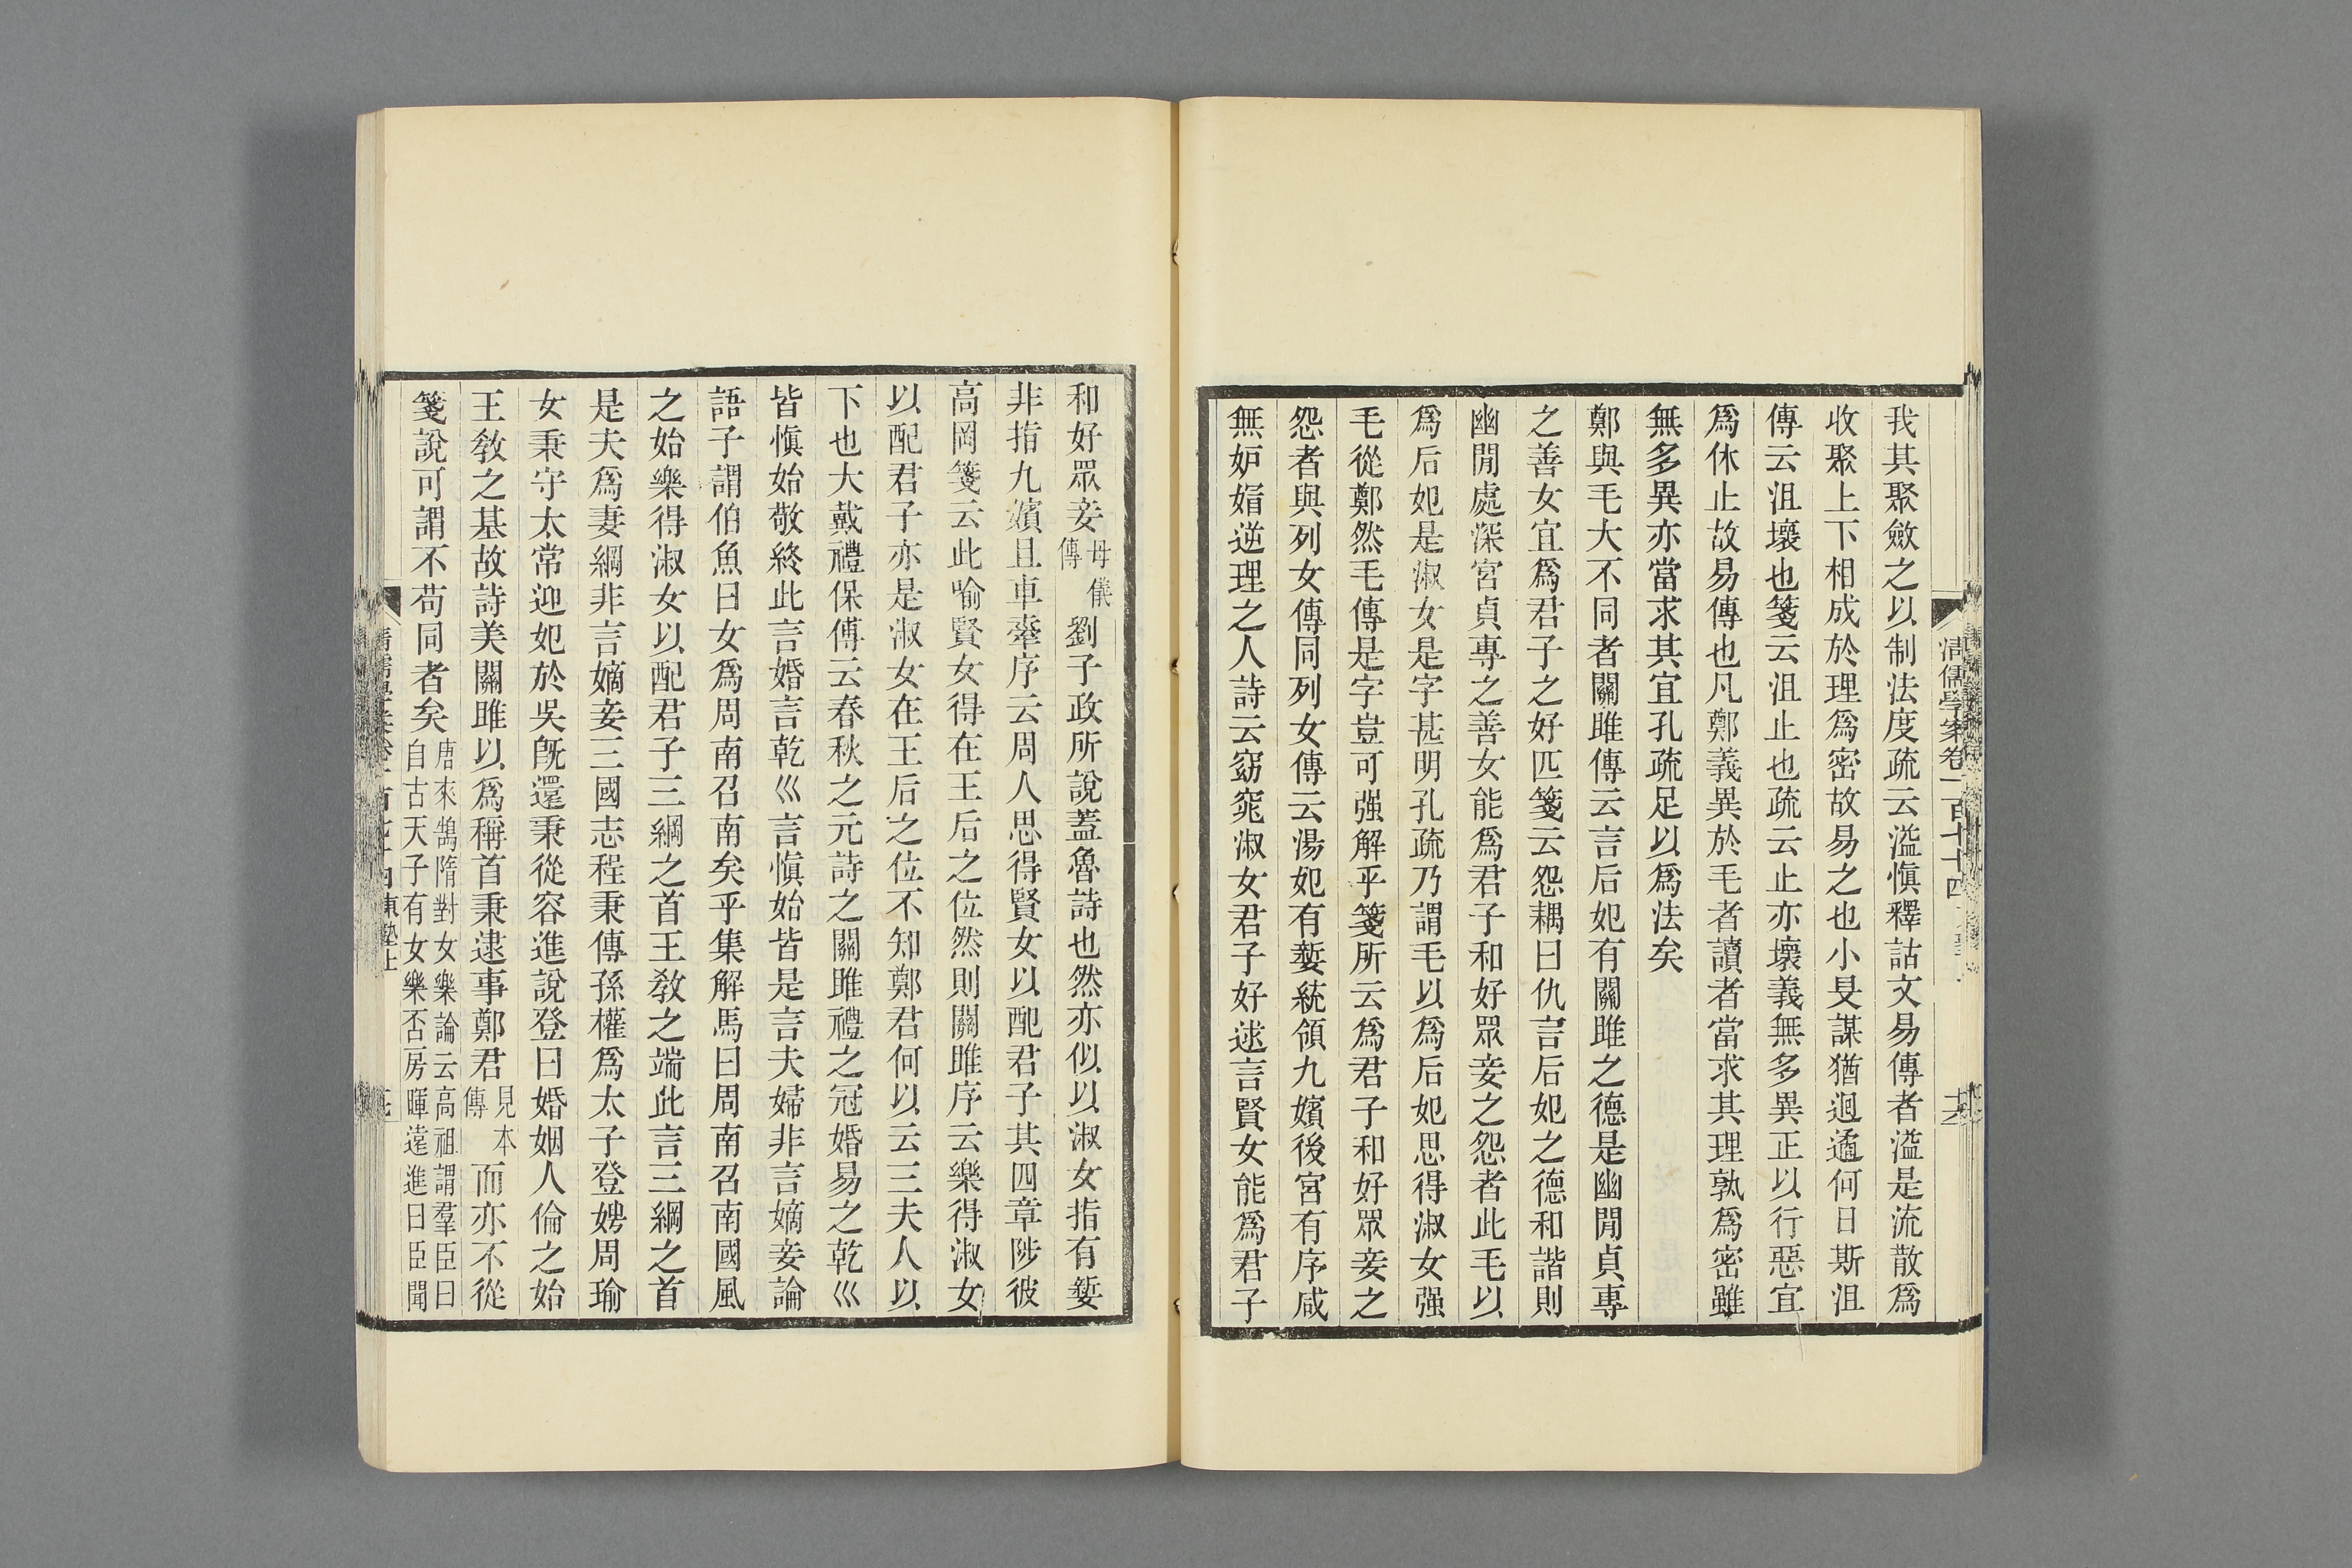 我其聚斂之以制法度疏云溢慎釋詁文易傳者溢是流散爲
收聚上下相成於理爲密故易之也小旻謀猶迴遹何日斯沮
傳云沮壞也箋云沮止也疏云止亦壞義無多異正以行惡宜
爲休止故易傳也凡鄭義異於毛者讀者當求其理孰爲密雖
無多異亦當求其宜孔疏足以爲法矣
鄭與毛大不同者關雎傳云言后妃有關雎之德是幽閒貞專
之善女宜爲君子之好匹箋云怨耦曰仇言后妃之德和諧則
幽閒處深宮貞專之善女能爲君子和好眾妾之怨者此毛以
爲后妃是淑女是字甚明孔疏乃謂毛以爲后妃思得淑女强
毛從鄭然毛傳是字豈可强解乎箋所云爲君子和好眾妾之
怨者與列女傳同列女傳云湯妃有㜪統領九嬪後宮有序咸
無妒媢逆理之人詩云窈窕淑女君子好逑言賢女能爲君子
和好眾妾母儀傳劉子政所說蓋魯詩也然亦似以淑女指有㜪
非指九嬪且車舝序云周人思得賢女以配君子其四章陟彼
高岡箋云此喻賢女得在王后之位然則關雎序云樂得淑女
以配君子亦是淑女在王后之位不知鄭君何以云三夫人以
下也大戴禮保傅云春秋之元詩之關雎禮之冠婚易之乾巛
皆慎始敬終此言婚言乾巛言慎始皆是言夫婦非言嫡妾論
語子謂伯魚曰女爲周南召南矣乎集解馬曰周南召南國風
之始樂得淑女以配君子三綱之首王敎之端此言三綱之首
是夫爲妻綱非言嫡妾三國志程秉傳孫權爲太子登娉周瑜
女秉守太常迎妃於吳旣還秉從容進說登曰婚姻人倫之始
王敎之基故詩美關雎以爲稱首秉逮事鄭君見本傳而亦不從
箋說可謂不苟同者矣唐來鵠隋對女樂論云高祖謂羣臣曰自古天子有女樂否房暉遠進曰臣聞